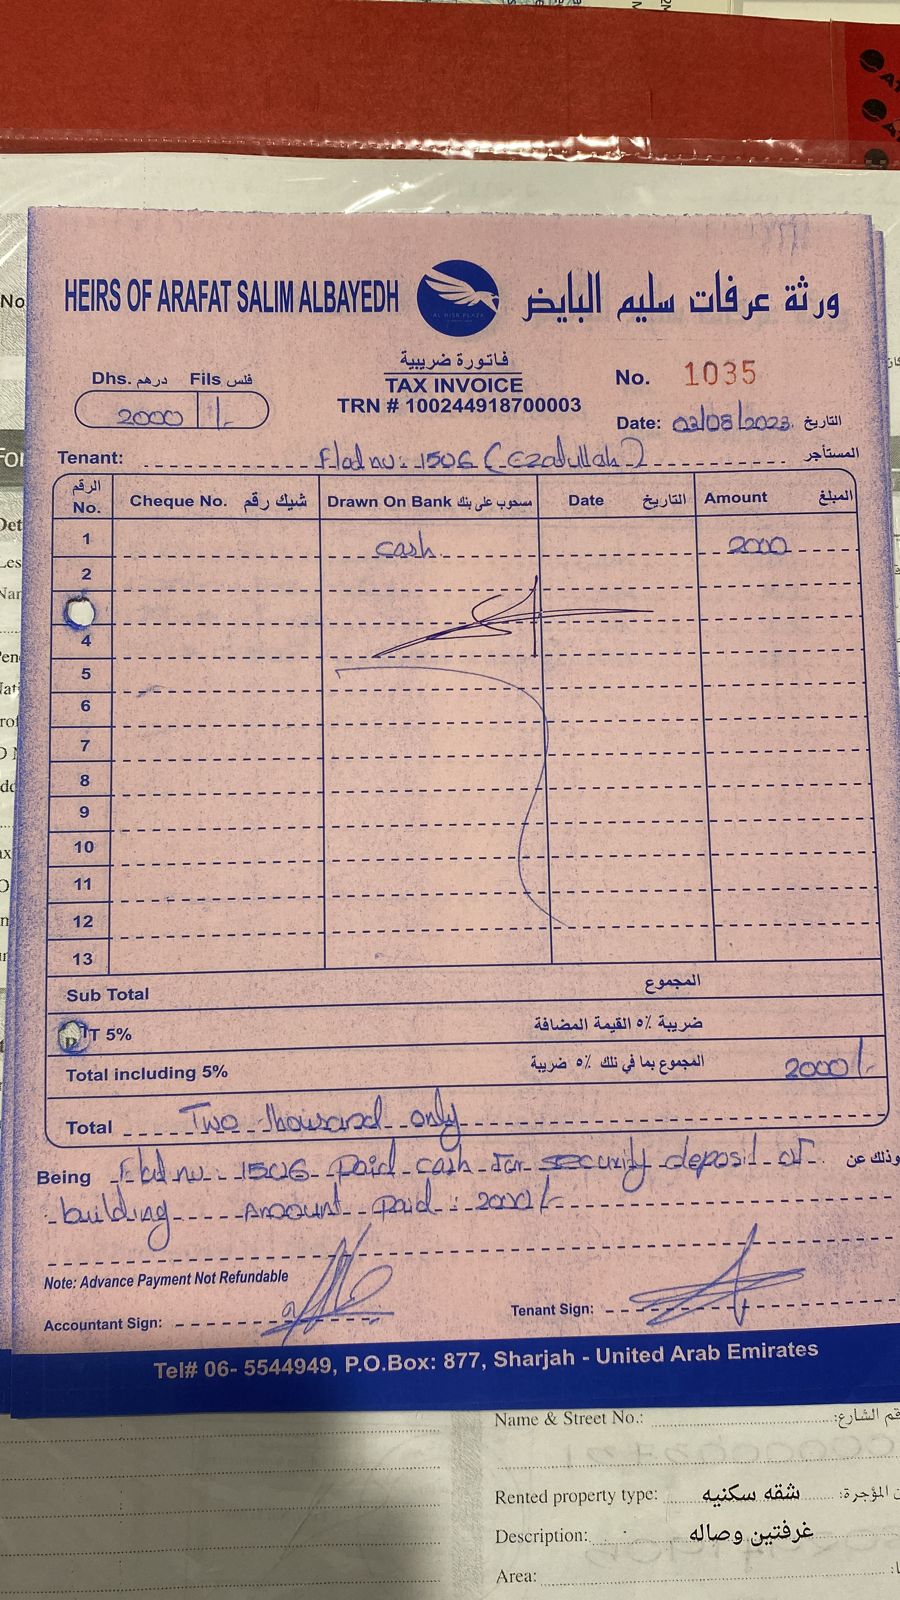 HEIRS OF ARAFAT SALIM ALBAYEDH
AL HISN PLAZA
ورثة عرفات سليم البايض
فاتورة ضريبية
TAX INVOICE
TRN # 100244918700003
Dhs. درهم Fils فلس
2000 /-
No. 1035
Date: 03/08/2023 التاريخ
Tenant: Flat no: 1506 (Ezatullah) المستأجر
الرقم No. Cheque No. شيك رقم Drawn On Bank مسحوب على بنك Date التاريخ Amount المبلغ
1 cash 2000
2
4
5
6
7
8
9
10
11
12
13
Sub Total المجموع
T 5% ضريبة ٥٪ القيمة المضافة
Total including 5% المجموع بما في ذلك ٥٪ ضريبة 2000/-
Total Two thousand only
Being Flat no: 1506 Paid cash for security deposit of وذلك عن
building Amount Paid: 2000/-
Note: Advance Payment Not Refundable
Accountant Sign: Tenant Sign:
Tel# 06- 5544949, P.O.Box: 877, Sharjah - United Arab Emirates
Name & Street No.: الشارع:
Rented property type: شقه سكنيه المؤجرة:
Description: غرفتين وصاله
Area: